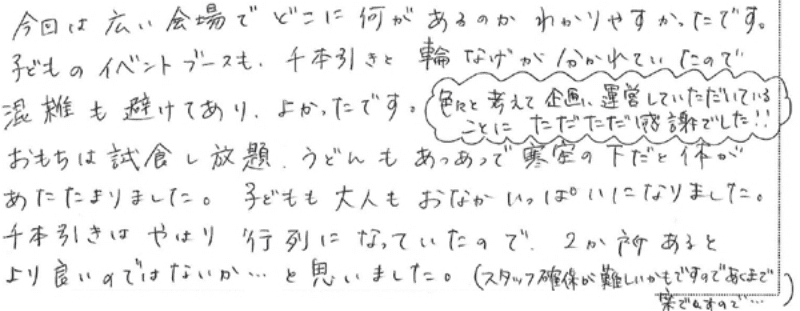 今回は広い会場でどこに何があるのかわかりやすかったです。
子どものイベントブースも、千本引きと輪なげが分かれていたので
混雑も避けてあり、よかったです。
色々と考えて企画、運営していただいている
ことにただただ感謝でした!!
おもちは試食し放題、うどんもあっあっで寒空の下だと体が
あたたまりました。子どもも大人もおなかいっぱいになりました。
千本引きはやはり行列になっていたので、2か所あると
より良いのではないか…と思いました。(スタッフ確保が難しいかもですのであくまで
案ですので…)